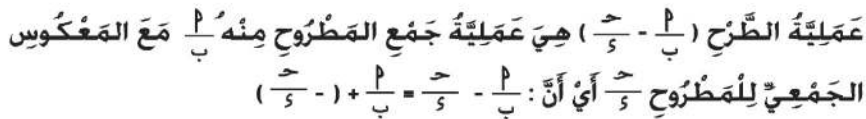 عَمَلِيَّةُ الطَّرْحِ ( أ/ب - حـ/ء ) هِيَ عَمَلِيَّةُ جَمْعِ المَطْرُوحِ مِنْهُ أ/ب مَعَ المَعْكُوسِ
الجَمْعِيِّ لِلْمَطْرُوحِ حـ/ء أَيْ أَنَّ : أ/ب - حـ/ء = أ/ب + ( - حـ/ء )